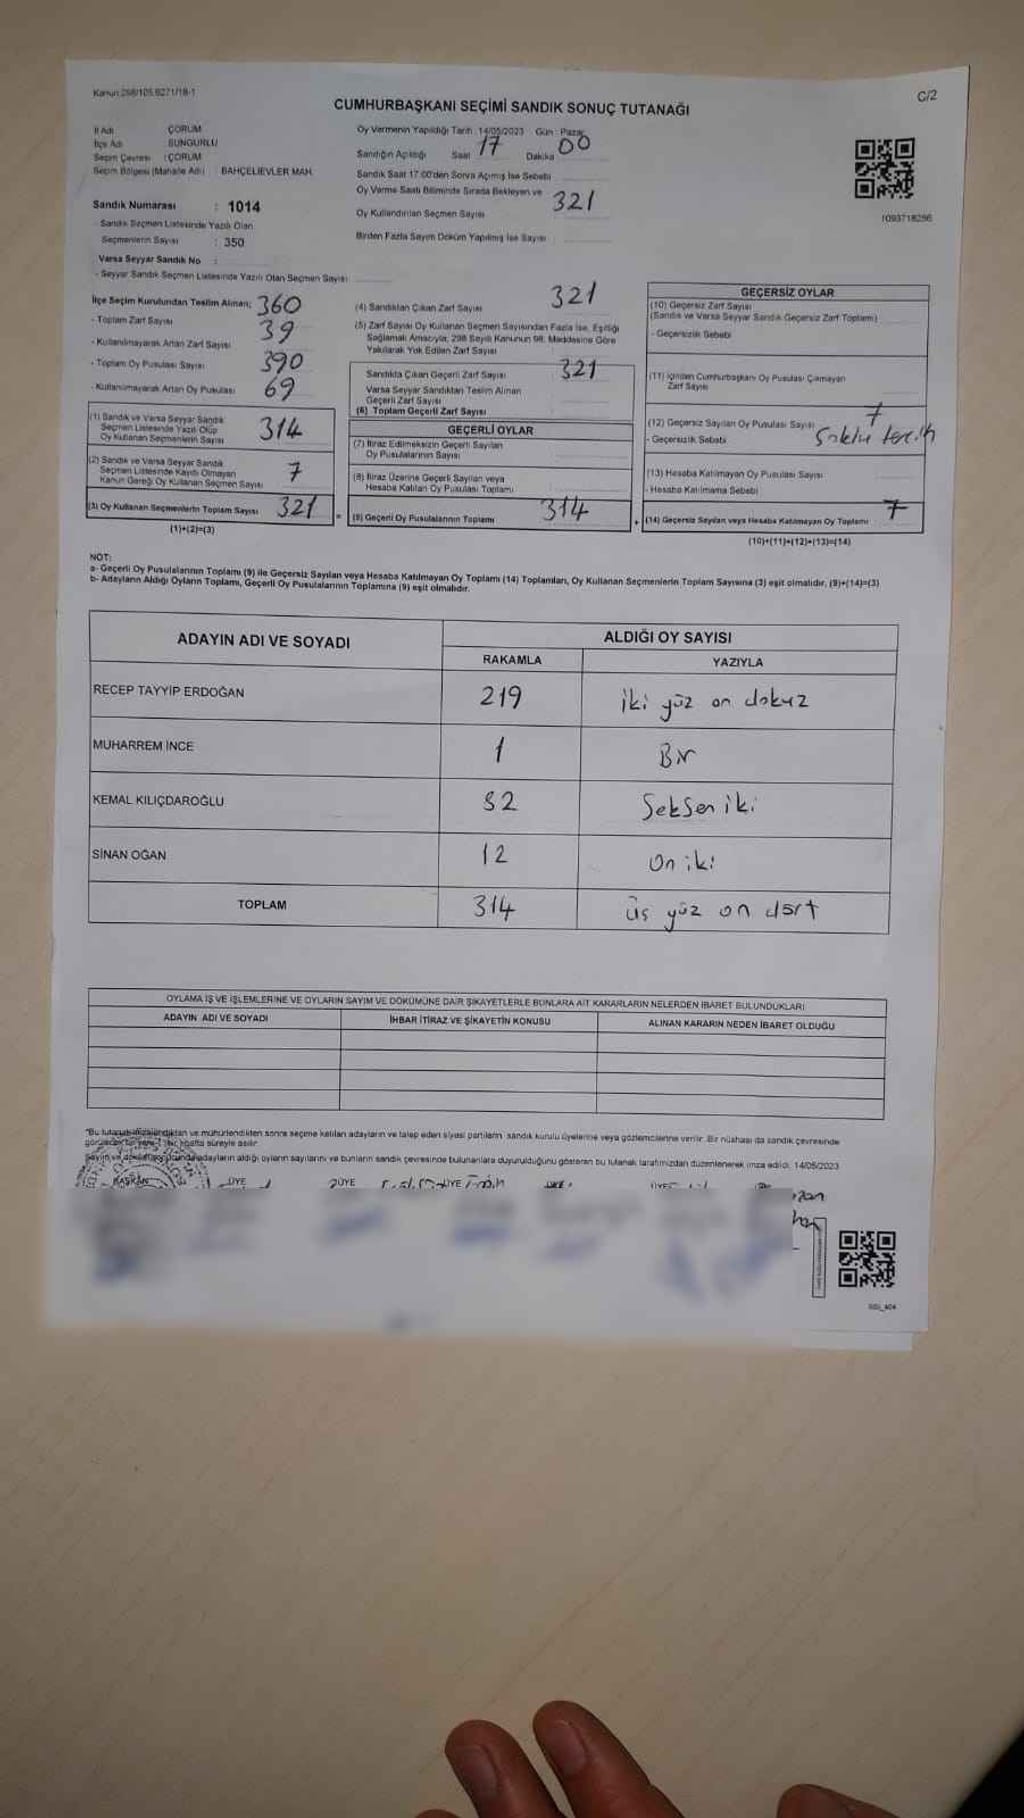 Kanun:298/105,6271/18-1
C/2
CUMHURBAŞKANI SEÇİMİ SANDIK SONUÇ TUTANAĞI
İl Adı : ÇORUM
İlçe Adı : SUNGURLU
Seçim Çevresi : ÇORUM
Seçim Bölgesi (Mahalle Adı) : BAHÇELİEVLER MAH.
Sandık Numarası : 1014
- Sandık Seçmen Listesinde Yazılı Olan
Seçmenlerin Sayısı : 350
Varsa Seyyar Sandık No :
- Seyyar Sandık Seçmen Listesinde Yazılı Olan Seçmen Sayısı
Oy Vermenin Yapıldığı Tarih : 14/05/2023 Gün : Pazar
Sandığın Açıldığı Saat 17 Dakika 00
Sandık Saat 17:00'den Sonra Açılmış İse Sebebi
Oy Verme Saati Bitiminde Sırada Bekleyen ve
Oy Kullandırılan Seçmen Sayısı 321
Birden Fazla Sayım Döküm Yapılmış İse Sayısı
1093718286
İlçe Seçim Kurulundan Teslim Alınan;
- Toplam Zarf Sayısı 360
- Kullanılmayarak Artan Zarf Sayısı 39
- Toplam Oy Pusulası Sayısı 390
- Kullanılmayarak Artan Oy Pusulası 69
(1) Sandık ve Varsa Seyyar Sandık
Seçmen Listesinde Yazılı Olup
Oy Kullanan Seçmenlerin Sayısı 314
(2) Sandık ve Varsa Seyyar Sandık
Seçmen Listesinde Kayıtlı Olmayan
Kanun Gereği Oy Kullanan Seçmen Sayısı 7
(3) Oy Kullanan Seçmenlerin Toplam Sayısı 321
(1)+(2)=(3)
(4) Sandıktan Çıkan Zarf Sayısı 321
(5) Zarf Sayısı Oy Kullanan Seçmen Sayısından Fazla İse, Eşitliği
Sağlamak Amacıyla, 298 Sayılı Kanunun 98. Maddesine Göre
Yakılarak Yok Edilen Zarf Sayısı
Sandıkta Çıkan Geçerli Zarf Sayısı 321
Varsa Seyyar Sandıktan Teslim Alınan
Geçerli Zarf Sayısı
(6) Toplam Geçerli Zarf Sayısı
GEÇERLİ OYLAR
(7) İtiraz Edilmeksizin Geçerli Sayılan
Oy Pusulalarının Sayısı
(8) İtiraz Üzerine Geçerli Sayılan veya
Hesaba Katılan Oy Pusulası Toplamı
= (9) Geçerli Oy Pusulalarının Toplamı 314
GEÇERSİZ OYLAR
(10) Geçersiz Zarf Sayısı
(Sandık ve Varsa Seyyar Sandık Geçersiz Zarf Toplamı)
- Geçersizlik Sebebi
(11) İçinden Cumhurbaşkanı Oy Pusulası Çıkmayan
Zarf Sayısı
(12) Geçersiz Sayılan Oy Pusulası Sayısı 7
- Geçersizlik Sebebi
(13) Hesaba Katılmayan Oy Pusulası Sayısı
- Hesaba Katılmama Sebebi
+ (14) Geçersiz Sayılan veya Hesaba Katılmayan Oy Toplamı 7
(10)+(11)+(12)+(13)=(14)
NOT:
a- Geçerli Oy Pusulalarının Toplamı (9) ile Geçersiz Sayılan veya Hesaba Katılmayan Oy Toplamı (14) Toplamları, Oy Kullanan Seçmenlerin Toplam Sayısına (3) eşit olmalıdır. (9)+(14)=(3)
b- Adayların Aldığı Oyların Toplamı, Geçerli Oy Pusulalarının Toplamına (9) eşit olmalıdır.
ADAYIN ADI VE SOYADI ALDIĞI OY SAYISI
RAKAMLA YAZIYLA
RECEP TAYYİP ERDOĞAN 219 iki yüz on dokuz
MUHARREM İNCE 1 Bir
KEMAL KILIÇDAROĞLU 82 Seksen iki
SİNAN OĞAN 12 On iki
TOPLAM 314 üç yüz on dört
OYLAMA İŞ VE İŞLEMLERİNE VE OYLARIN SAYIM VE DÖKÜMÜNE DAİR ŞİKAYETLERLE BUNLARA AİT KARARLARIN NELERDEN İBARET BULUNDUKLARI
ADAYIN ADI VE SOYADI İHBAR İTİRAZ VE ŞİKAYETİN KONUSU ALINAN KARARIN NEDEN İBARET OLDUĞU
ve mühürlendikten sonra seçime katılan adayların ve talep eden siyasi partilerin sandık kurulu üyelerine veya gözlemcilerine verilir. Bir nüshası da sandık çevresinde
hafta süreyle asılır.
adayların aldığı oyların sayılarını ve bunların sandık çevresinde bulunanlara duyurulduğunu gösteren bu tutanak tarafımızdan düzenlenerek imza edildi. 14/05/2023
BAŞKAN ÜYE ÜYE ÜYE ÜYE ÜYE